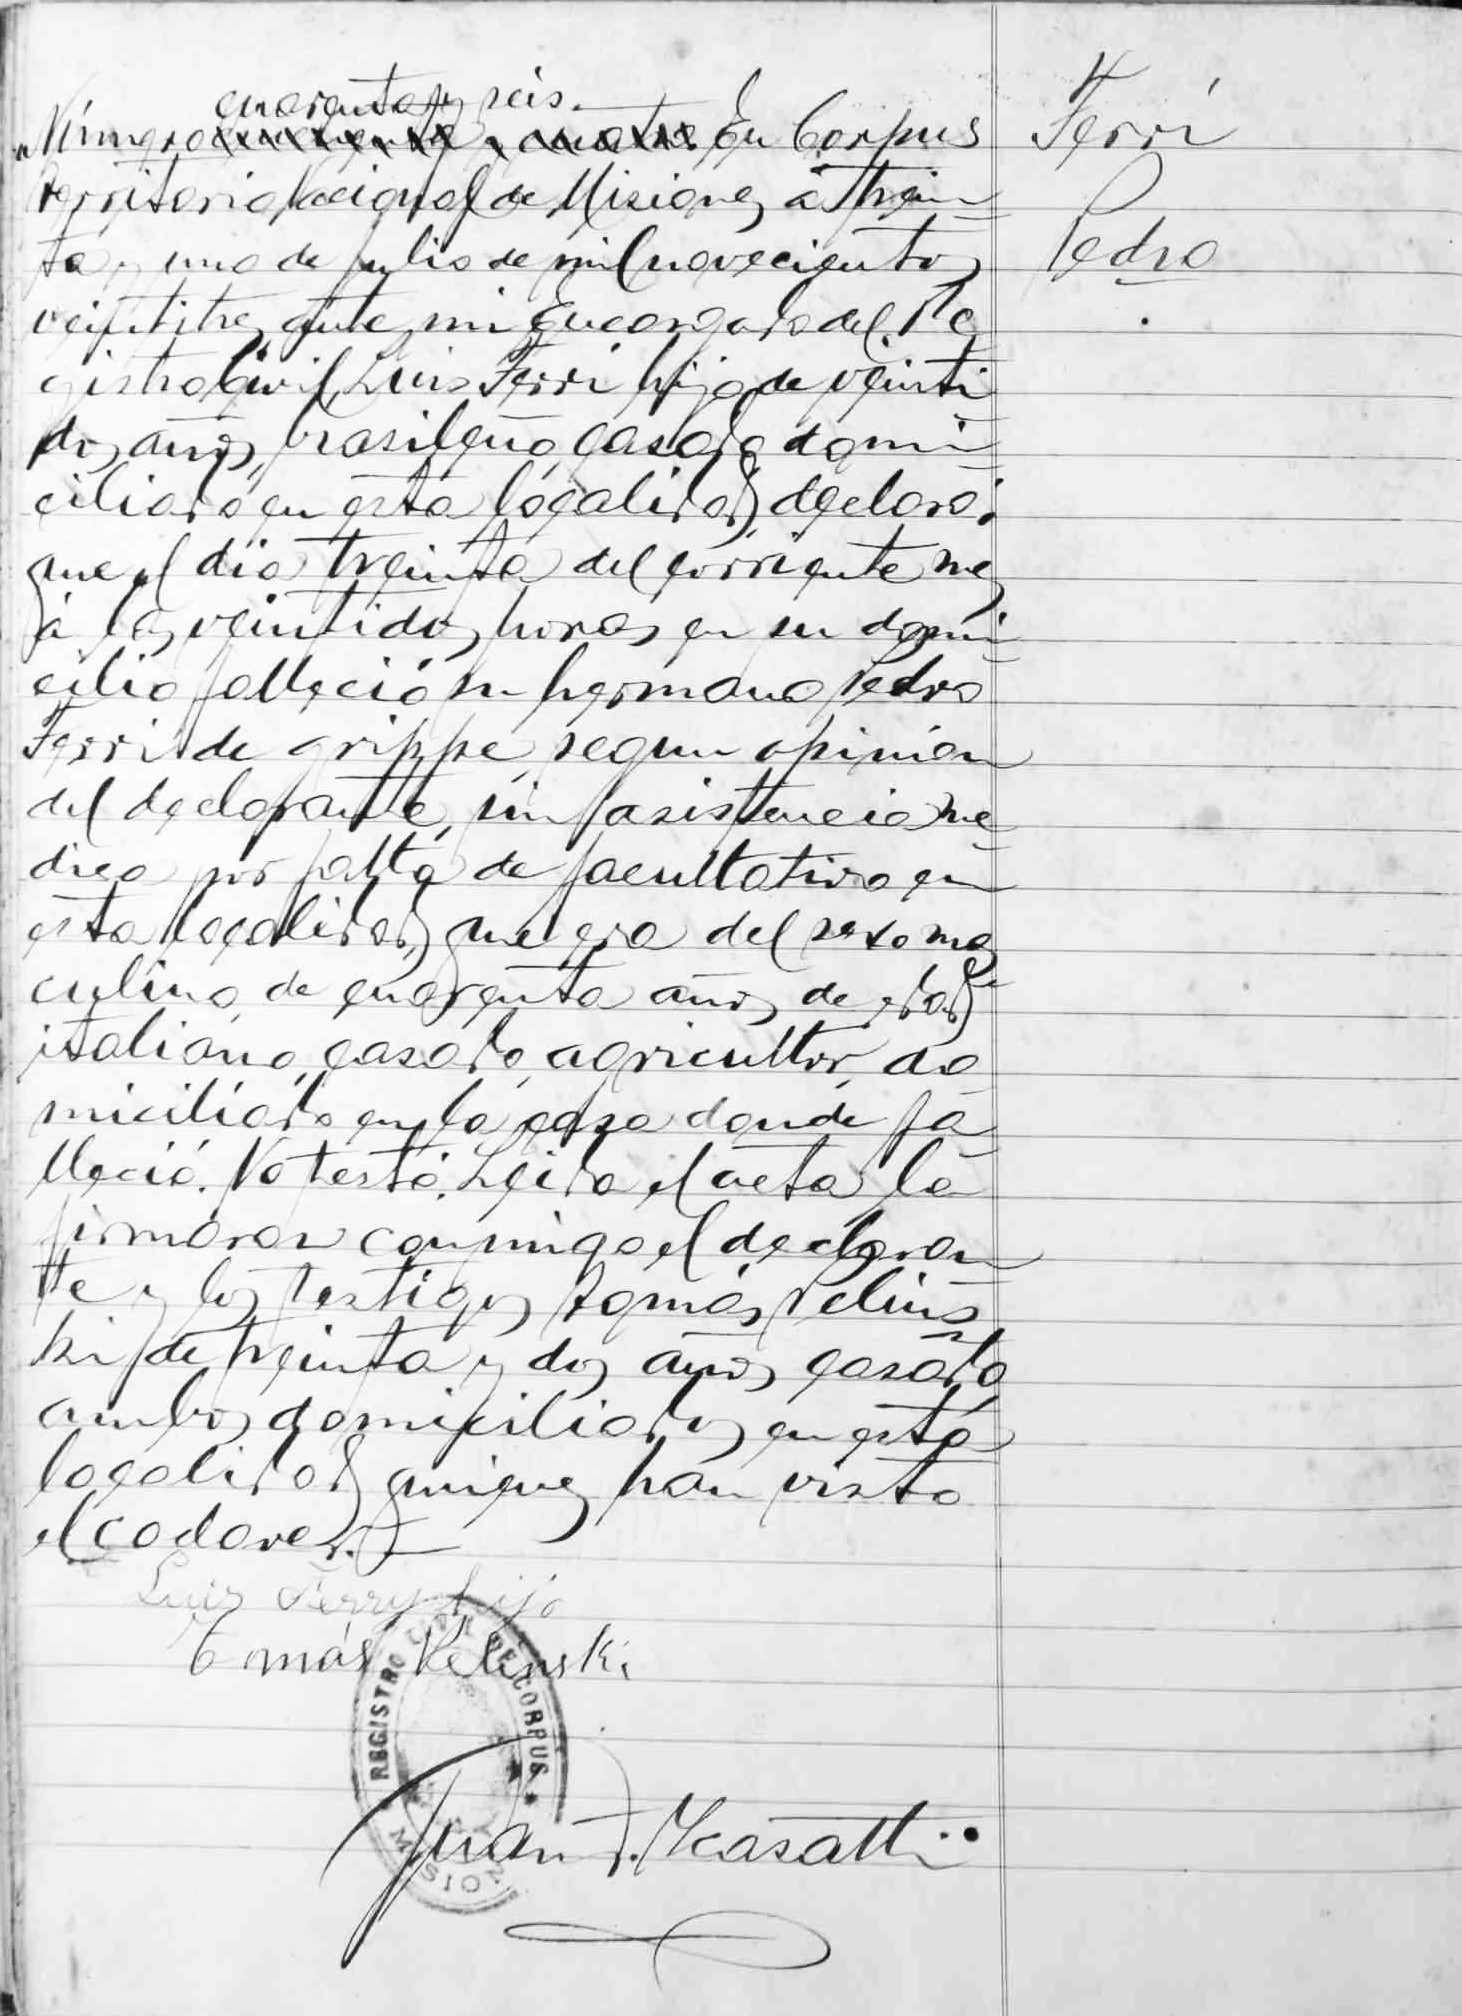 Ferri
Pedro
cuarenta y seis.
Número En Corpus
Territorio Nacional de Misiones, á trein
ta y uno de julio de mil novecientos
veintitres, ante mi Encargado del Re
gistro Civil, Luis Ferri hijo, de veinti
dos años, brasileño, casado, domi
ciliado en esta localidad, declaró:
que el dia treinta del corriente mes
á las veintidos horas en su domi
cilio falleció su hermano Pedro
Ferri de grippe, segun opinion
del declarante, sin asistencia me
dica por falta de facultativo en
esta localidad, que era del sexo mas
culino, de cuarenta años de edad,
italiano, casado, agricultor, do
miciliado en la casa donde fa
lleció. No testó. Leida el acta la
firmaron conmigo el declaran
te y los testigos Tomás Velins
ki de treinta y dos años, casado,
ambos domiciliados en esta
localidad quienes han visto
el cadaver.
Luis Ferry hijo
Tomás Velinski
REGISTRO CIVIL DE CORPUS
MISIONES
Juan